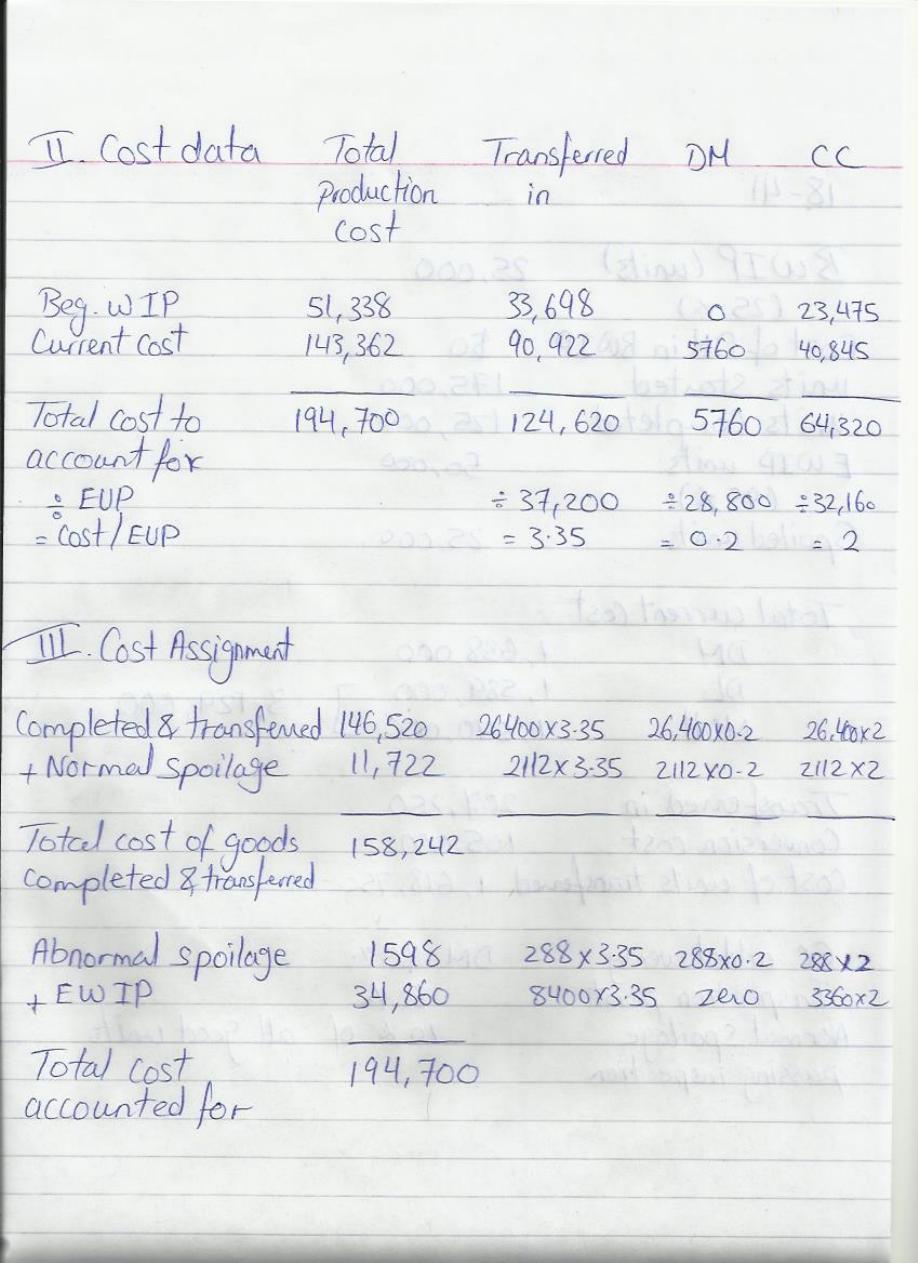 II. Cost data Total Transferred DM CC
Production in
Cost
Beg. WIP 51,338 33,698 0 23,475
Current Cost 143,362 90,922 5760 40,845
Total Cost to 194,700 124,620 5760 64,320
account for
÷ EUP ÷ 37,200 ÷28,800 ÷32,160
= Cost/EUP = 3.35 = 0.2 = 2
III. Cost Assignment
Completed & transferred 146,520 26400x3.35 26,400x0.2 26,400x2
+ Normal Spoilage 11,722 2112x3.35 2112x0.2 2112x2
Total cost of goods 158,242
Completed & transferred
Abnormal spoilage 1598 288x3.35 288x0.2 288x2
+ EWIP 34,860 8400x3.35 zero 3360x2
Total cost 194,700
accounted for